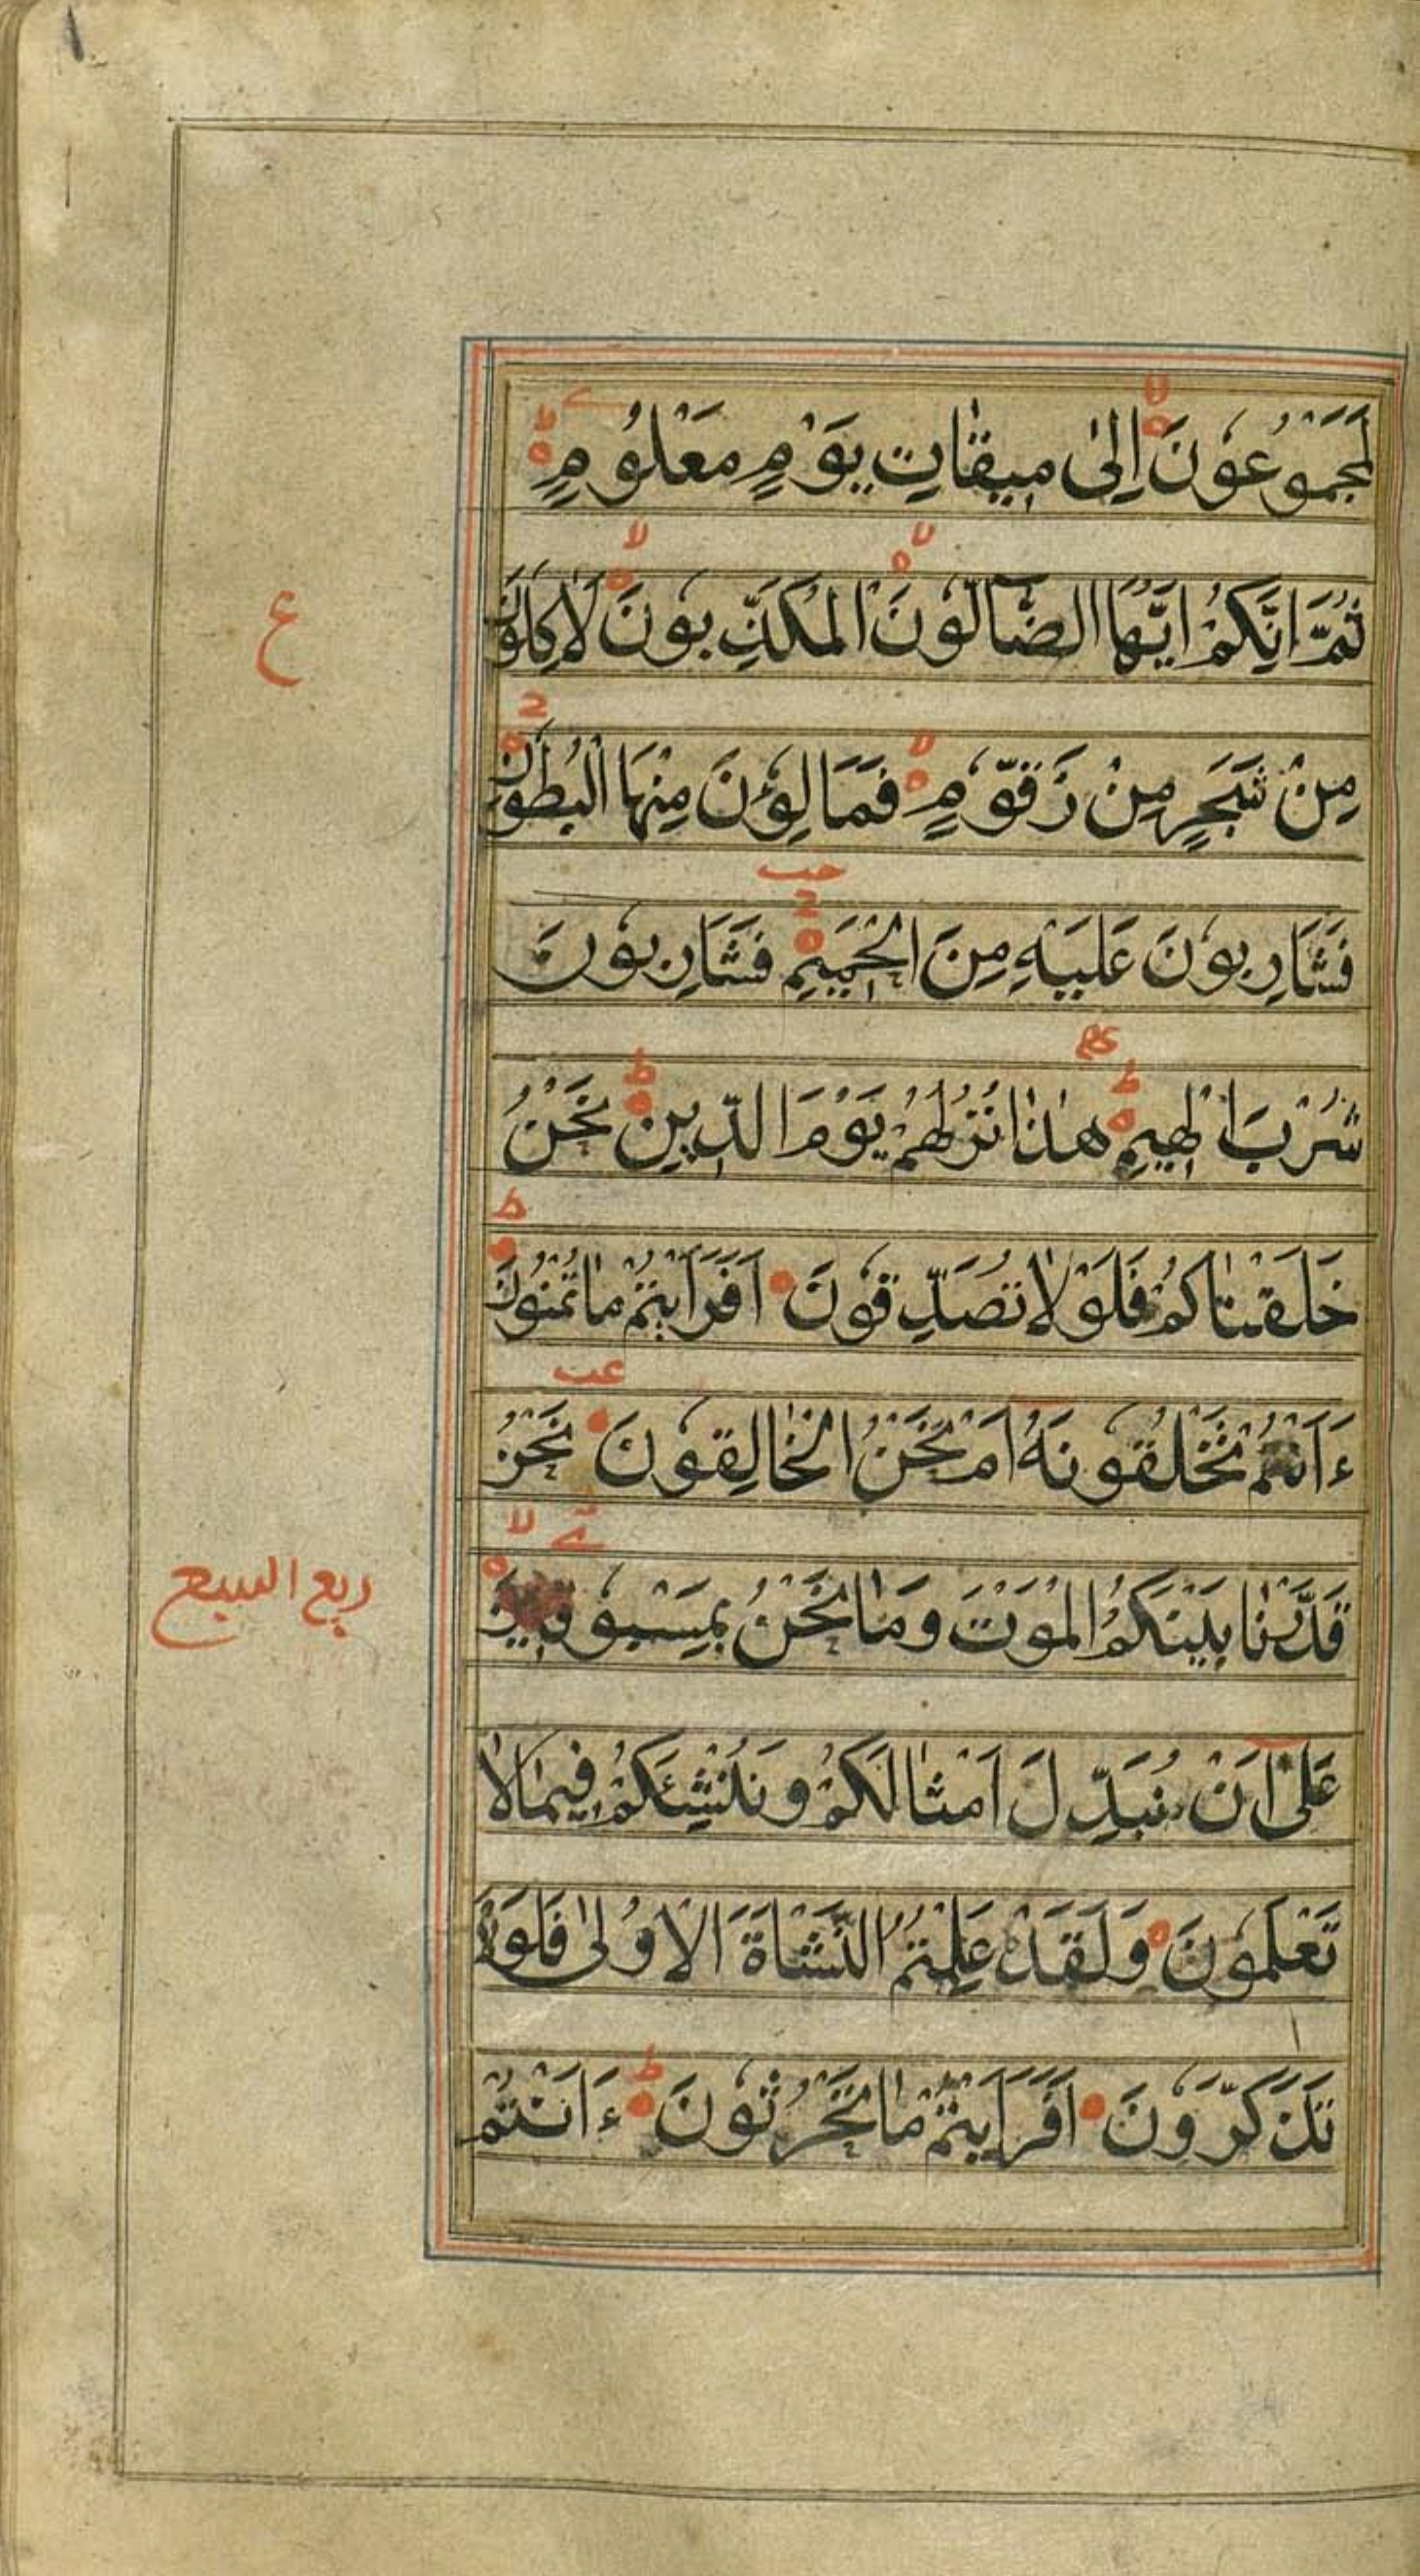 لَمَجْمُوعُونَ اِلىٰ مِيقٰاتِ يَوْمٍ مَعْلُومٍ
ثُمَّ اِنَّكُمْ اَيُّهَا الضَّآلُّونَ الْمُكَذِّبُونَ لَاٰكِلُونَ
مِنْ شَجَرٍ مِنْ زَقُّومٍ فَمَالِؤُنَ مِنْهَا الْبُطُونَ
فَشَارِبُونَ عَلَيْهِ مِنَ الْحَمِيمِ فَشَارِبُونَ
شُرْبَ الْهِيمِ هٰذٰا نُزُلُهُمْ يَوْمَ الدِّينِ نَحْنُ
خَلَقْنٰاكُمْ فَلَوْلٰا تُصَدِّقُونَ اَفَرَاَيْتُمْ مٰا تُمْنُونَ
ءَاَنْتُمْ تَخْلُقُونَهُ اَمْ نَحْنُ الْخٰالِقُونَ نَحْنُ
قَدَّرْنٰا بَيْنَكُمُ الْمَوْتَ وَمٰا نَحْنُ بِمَسْبُوقِينَ
عَلىٰ اَنْ نُبَدِّلَ اَمْثٰالَكُمْ وَنُنْشِئَكُمْ فِيمٰا لٰا
تَعْلَمُونَ وَلَقَدْ عَلِمْتُمُ النَّشْاَةَ الْاُولىٰ فَلَوْلٰا
تَذَكَّرُونَ اَفَرَاَيْتُمْ مٰا تَحْرُثُونَ ءَاَنْتُمْ
ع
ربع السبع